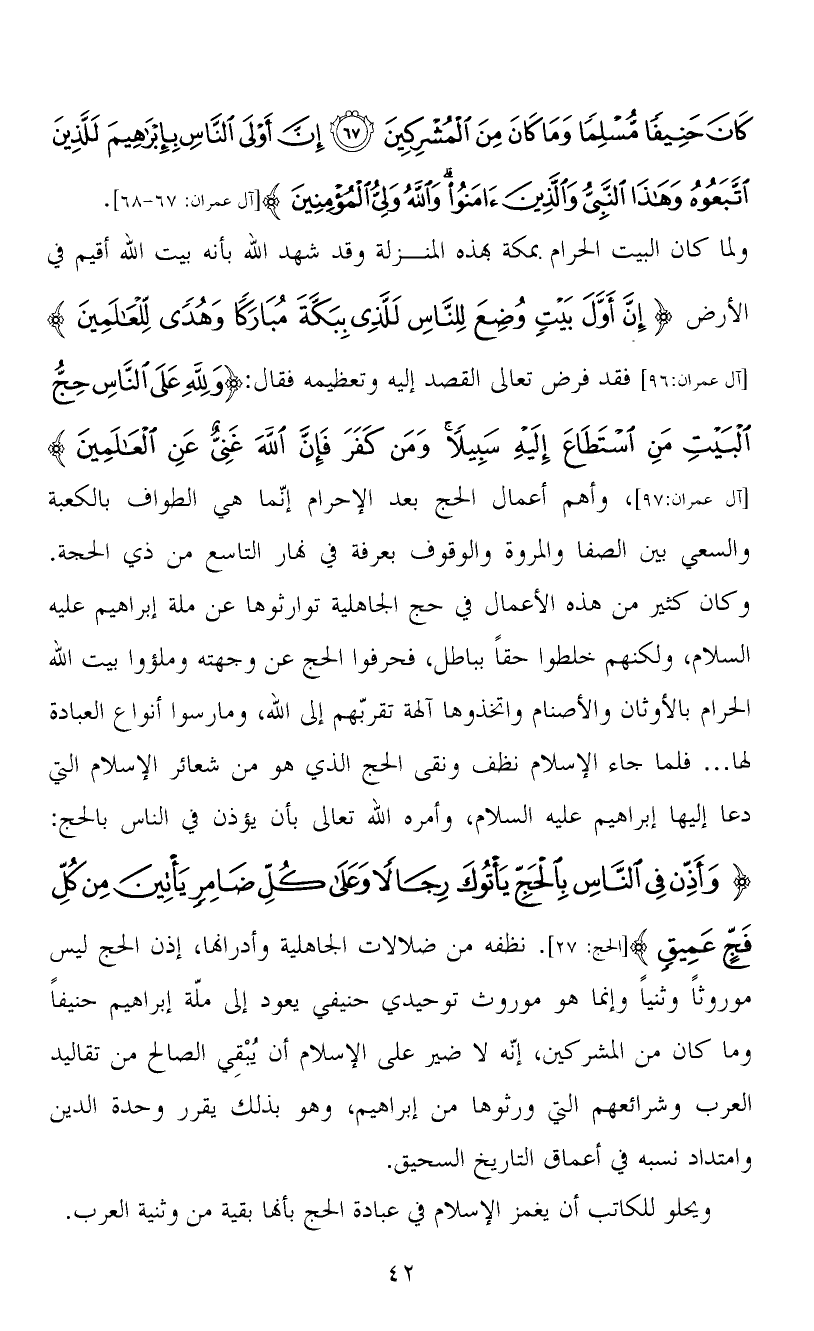 كَانَ حَنِيفًا مُّسْلِمًا وَمَا كَانَ مِنَ ٱلْمُشْرِكِينَ ۝٦٧ إِنَّ أَوْلَى ٱلنَّاسِ بِإِبْرَٰهِيمَ لَلَّذِينَ
ٱتَّبَعُوهُ وَهَـٰذَا ٱلنَّبِىُّ وَٱلَّذِينَ ءَامَنُوا۟ ۗ وَٱللَّهُ وَلِىُّ ٱلْمُؤْمِنِينَ ﴾[آل عمران: ٦٧-٦٨].
ولما كان البيت الحرام بمكة بهذه المنـزلة وقد شهد الله بأنه بيت الله أقيم في
الأرض ﴿ إِنَّ أَوَّلَ بَيْتٍ وُضِعَ لِلنَّاسِ لَلَّذِى بِبَكَّةَ مُبَارَكًا وَهُدًى لِّلْعَـٰلَمِينَ ﴾
[آل عمران:٩٦] فقد فرض تعالى القصد إليه وتعظيمه فقال:﴿وَلِلَّهِ عَلَى ٱلنَّاسِ حِجُّ
ٱلْبَيْتِ مَنِ ٱسْتَطَاعَ إِلَيْهِ سَبِيلًا ۚ وَمَن كَفَرَ فَإِنَّ ٱللَّهَ غَنِىٌّ عَنِ ٱلْعَـٰلَمِينَ ﴾
[آل عمران:٩٧]، وأهم أعمال الحج بعد الإحرام إنّما هي الطواف بالكعبة
والسعي بين الصفا والمروة والوقوف بعرفة في نهار التاسع من ذي الحجة.
وكان كثير من هذه الأعمال في حج الجاهلية توارثوها عن ملة إبراهيم عليه
السلام، ولكنهم خلطوا حقاً بباطل، فحرفوا الحج عن وجهته وملؤوا بيت الله
الحرام بالأوثان والأصنام واتخذوها آلهة تقربّهم إلى الله، ومارسوا أنواع العبادة
لها... فلما جاء الإسلام نظف ونقى الحج الذي هو من شعائر الإسلام التي
دعا إليها إبراهيم عليه السلام، وأمره الله تعالى بأن يؤذن في الناس بالحج:
﴿ وَأَذِّن فِى ٱلنَّاسِ بِٱلْحَجِّ يَأْتُوكَ رِجَالًا وَعَلَىٰ كُلِّ ضَامِرٍ يَأْتِينَ مِن كُلِّ
فَجٍّ عَمِيقٍ ﴾[الحج: ٢٧]. نظفه من ضلالات الجاهلية وأدرانها، إذن الحج ليس
موروثاً وثنياً وإنما هو موروث توحيدي حنيفي يعود إلى ملّة إبراهيم حنيفاً
وما كان من المشركين، إنّه لا ضير على الإسلام أن يُبْقِي الصالح من تقاليد
العرب وشرائعهم التي ورثوها من إبراهيم، وهو بذلك يقرر وحدة الدين
وامتداد نسبه في أعماق التاريخ السحيق.
ويحلو للكاتب أن يغمز الإسلام في عبادة الحج بأنها بقية من وثنية العرب.
٤٢